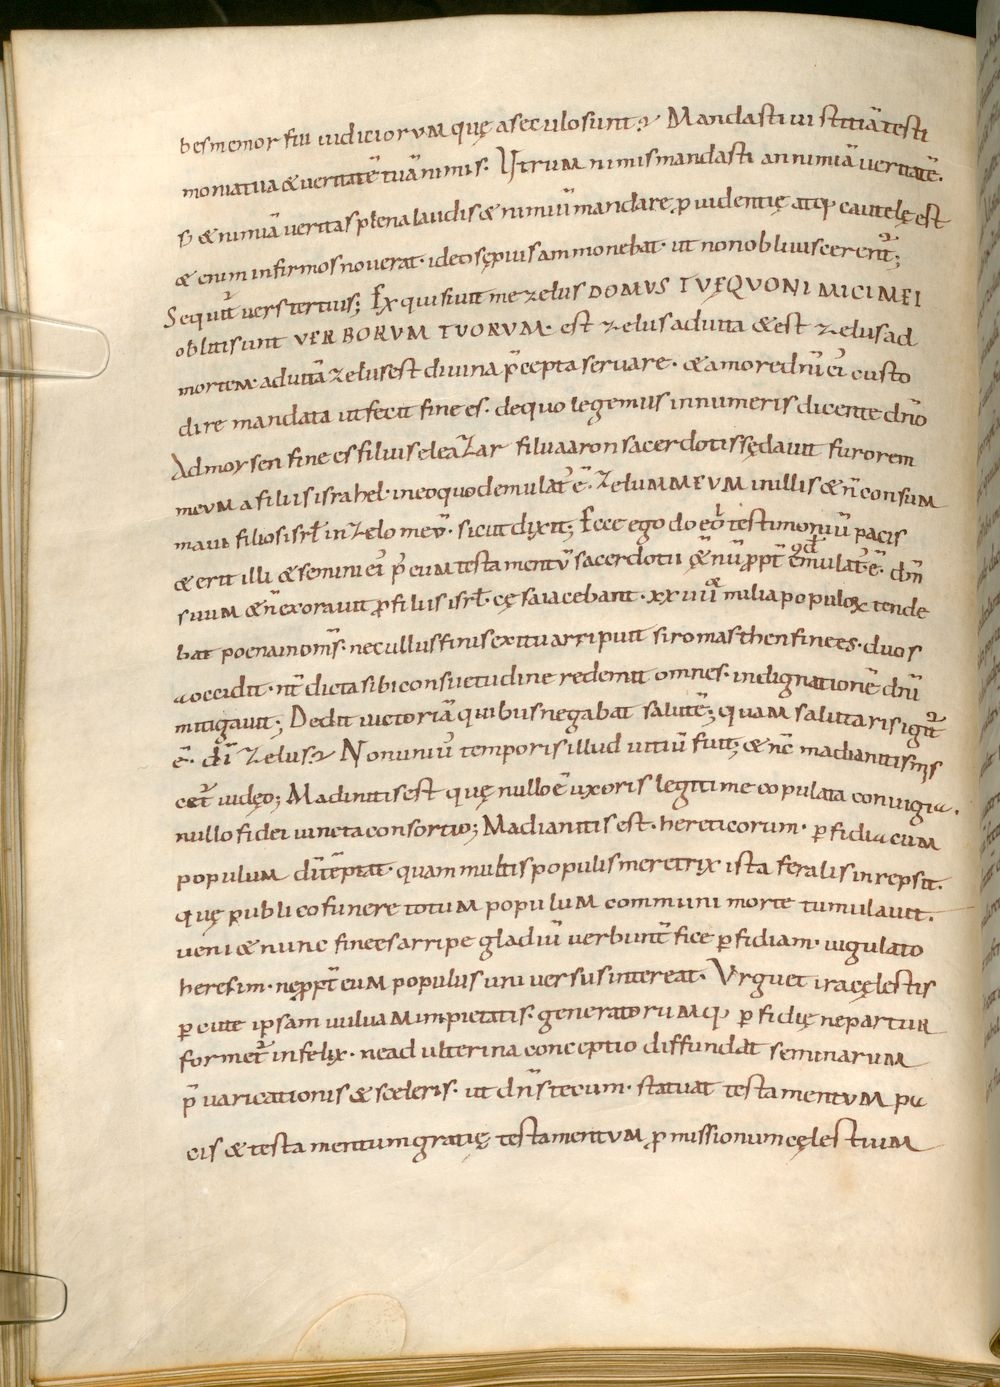 besmemor fui iudiciorum quę aseculosunt? Mandasti iustitiā testi
moniatua & veritatē tuā nimis. Utrum nimismandasti annimiā veritatē.
s; & nimiā veritasplenalaudis & nimiū mandare, pvidentię atq; cautelę est
& enim infirmosnoverat. ideosępiusammonebat. ut nonobliviscerent̄;
Sequit̄ vers tertius; Exquisiuit mezelus DOMUS TUĘQUONI MICI MEI
oblitisunt VERBORUM TUORUM. est zelusaduita & est zelusad
mortem. aduitā zelusest divina p̄cepta servare. & amorednī ei custo
dire mandata ut fecit finees. dequo legemus innumeris dicente dnō
Admoysen finees filius eleazar filiiaaron sacerdotis sędavit furorem
meum afiliis israhel. ineoquodemulat̄ ē. Zelummeum inillis & n̄ consum
maui filiosisrl̄ inzelo meū. sicut dixit; Ecce ego do ei testimoniū pacis
& erit illi & semini ei p̄ eum testamentū sacerdotii & nū ppt̄ qd̄ emulat̄ ē. dm̄
suum & n̄ exoravit p filiis isrl̄. cęsaiacebant. xxiiii milia populox tende
bat poenainomīs. necullusfinisexituarripuit siromasthenfinees. duos
occidit. nt̄ dictasibiconsuetudine redemit omnes. indignationē dnī
mitigavit; Dedit uictoriā quibusnegabat salutē; quam salutarisigit̄
ē. dī zelus? Nonuniū temporisillud uitiū fuit; & nc̄ madianitismīs
cet̄ uidęo; Madinitisest quę nulloē uxoris legitime copulata coniugia.
nullo fidei iunctaconsortio; Madianitisest. hereticorum. pfidia cum
populum dītēptat. quam multispopulismeretrix ista feralis inrepsit.
quę publicofunere totum populum communi morte tumulavit.
veni & nunc fineesarripe gladiū verbunt̄ fice pfidiam. iugulato
heresim. neppt̄ eum populus universusintereat. Urguet iracęlestis
pcute ipsam uuluam impietatis. generatorumq; pfidię nepartur
formet̄ infelix. nead ulterina conceptio diffundat seminarum
p̄varicationis & sceleris. ut dnstecum. statuat testamentum pa
cis & testamentumgratię testamentum pmissionumcęlestium